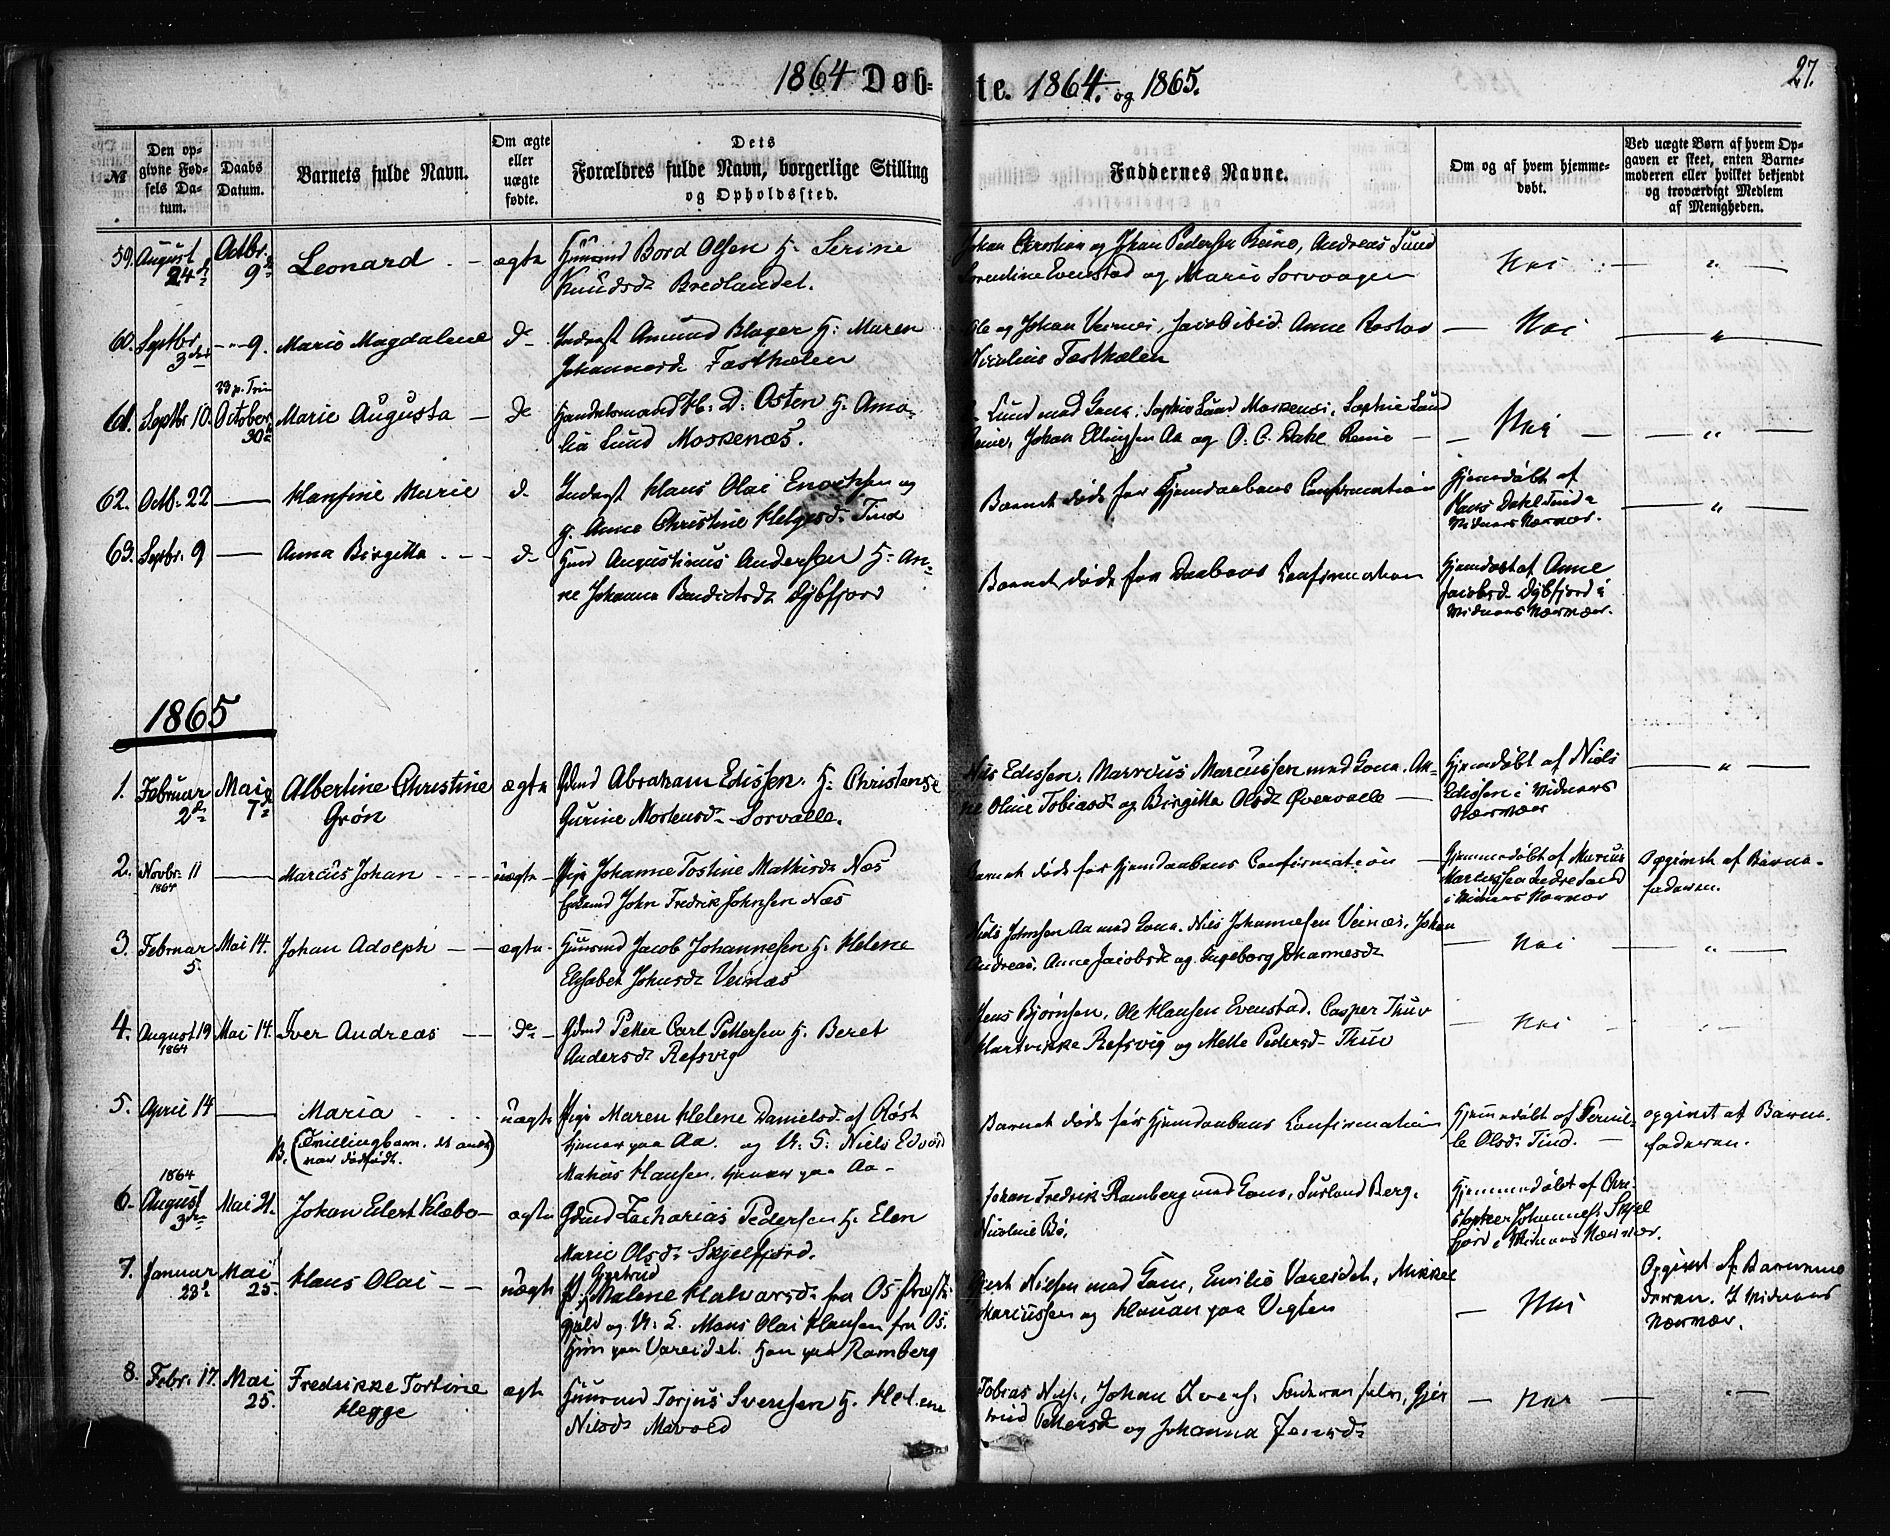 1864 Døb=te. 1864. og 1865.
27.
№
Den op-
givne Fød-
sels Da-
tum.
Daabs
Datum.
Barnets fulde Navn.
Om ægte
eller
uægte
fødte.
Dets
Forældres fulde Navn, borgerlige Stilling
og Opholdssted.
Faddernes Navne.
Om og af hvem hjemme-
døbt.
Ved uægte Børn af hvem Op-
gaven er skeet, enten Barne-
moderen eller hvilket bekjendt
og troværdigt Medlem
af Menigheden.
59. August 24 Octbr. 9 Leonard ægte
Huusmd Bord Olsen H. Serine
Knudsd. Bredlandet.
Johan Christian og Johan Pedersen Reine, Andreas Lund
Sorentine Evenstad og Marie Sorvaagen
Nei
60. Septbr 3 9. Marie Magdalene d
Inderst Amund Blager H. Maren
Johannesd.
Ole og Johan Veines, Jacob ibid. Anne Rostad
Nicoline
Nei
61. Septbr 10. 23 p. Trin October 30 Marie Augusta d
Handelsmand H. D. Osten H. Ama-
lia Lund Moskenæs.
Lund med Kona. Sophie Lund Moskenæs, Sophie Lund
Reine, Johan Ellingsen Aa og O. C. Dahl Reine
Nei
62. Octb. 22 Hansine Marie d
Inderst Hans Olai Enochsen og
H. Anne Christine Helgesd. Tind
Barnet døde før Hjemdaabens Confirmation
Hjemdøbt af
Hans Dahl Tind i
Vidners Nærvær.
63. Septbr. 9 Anna Birgitta d
Hmd Augustinus Andersen H. An-
ne Johanna Benedictsd. Dybfjord
Barnet døde før Daabens Confirmation
Hjemdøbt af Anne
Jacobsd. Dybfjord i
Vidners Nærvær.
1865
1. Februar 2 Mai 7 Albertine Christine ægte
Grøn
Gdmd Abraham Edissen. H. Christense
Gurine Mortensd. Sorvalle.
Nils Edissen, Marcus Marcussen med Kona. An-
ne Oline Tobiasd. og Birgitta Olsd. Øvervalle
Hjemdøbt af Niels
Edissen i Vidners
Nærvær
2. Novbr. 11 1864 Marcus Johan uægte
Pige Johanne Tostine Mathisd. Næs
John Fredrik Johnsen Næs
Barnet døde før Hjemdaabens Confirmation
Hjemmedøbt af Marcus
Marcussen Indre Sand
i Vidners Nærvær
Opgivet af Barne-
faderen.
3. Februar 5. Mai 14. Johan Adolph ægte
Huusmd Jacob Johannesen H. Helene
Elisabet Johnsd. Veinæs
Niels Johnsen Aa med Kona. Nils Johannesen Veinæs, Johan
Andreas, Anne Jacobsd. og Ingeborg Johannesd.
Nei
4. August 19 1864 Mai 14. Iver Andreas do
Gdmd Petter Carl Pettersen H. Beret
Andersd. Refsvig
Jens Bjørnsen, Ole Hansen Evenstad. Casper Thuv
Hartvikke Refsvig og Mette Pedersd. Thuv
Nei
5. April 14 Maria uægte
(Trillingbarn. de andre
var dødfødt.)
Pige Maren Helene Danielsd. af Røst
tjener paa Aa. og U. K. Niels Edvard
Mathias Hansen, tjener paa Aa.
Barnet døde før Hjemdaabens Confirmation
Hjemmedøbt af Pernil-
le Olsd. Tind.
opgivet af Barne-
faderen.
6. 1864 August 3 Mai 21. Johan Eilert Klæbo ægte
Gdmd Zacharias Pedersen H. Elen
Marie Olsd. Skjelfjord.
Johan Fredrik Ramberg med Kona, Berg,
Nicoline Bø.
Hjemmedøbt af Chri-
stopher Johannes. Skjel
fjord i Vidners Nærvær.
7. Januar 23 Mai 25. Hans Olai uægte
P. Gjertrud Malene Halvorsd. fra Os Præste-
gjeld og U. K. Mons Olai Hansen fra Os.
Hun paa Vareidet. Han paa Ramberg
Gjert Nielsen med Kone, Emilie Vareidet, Mikkel
Marcussen og Hanan paa Vigten
Nei
Opgivet af Barnemo
deren. I Vidners
Nærvær.
8. Febr. 17. Mai 25. Fredrikke Tortine ægte
Hegge
Huusmd Torjus Svensen H. Helene
Nilsd. Mavold
Tobias Niels., Johan Ivers. Faderen selv, Gjer
trud Pettersd. og Johanna Jensd.
Nei